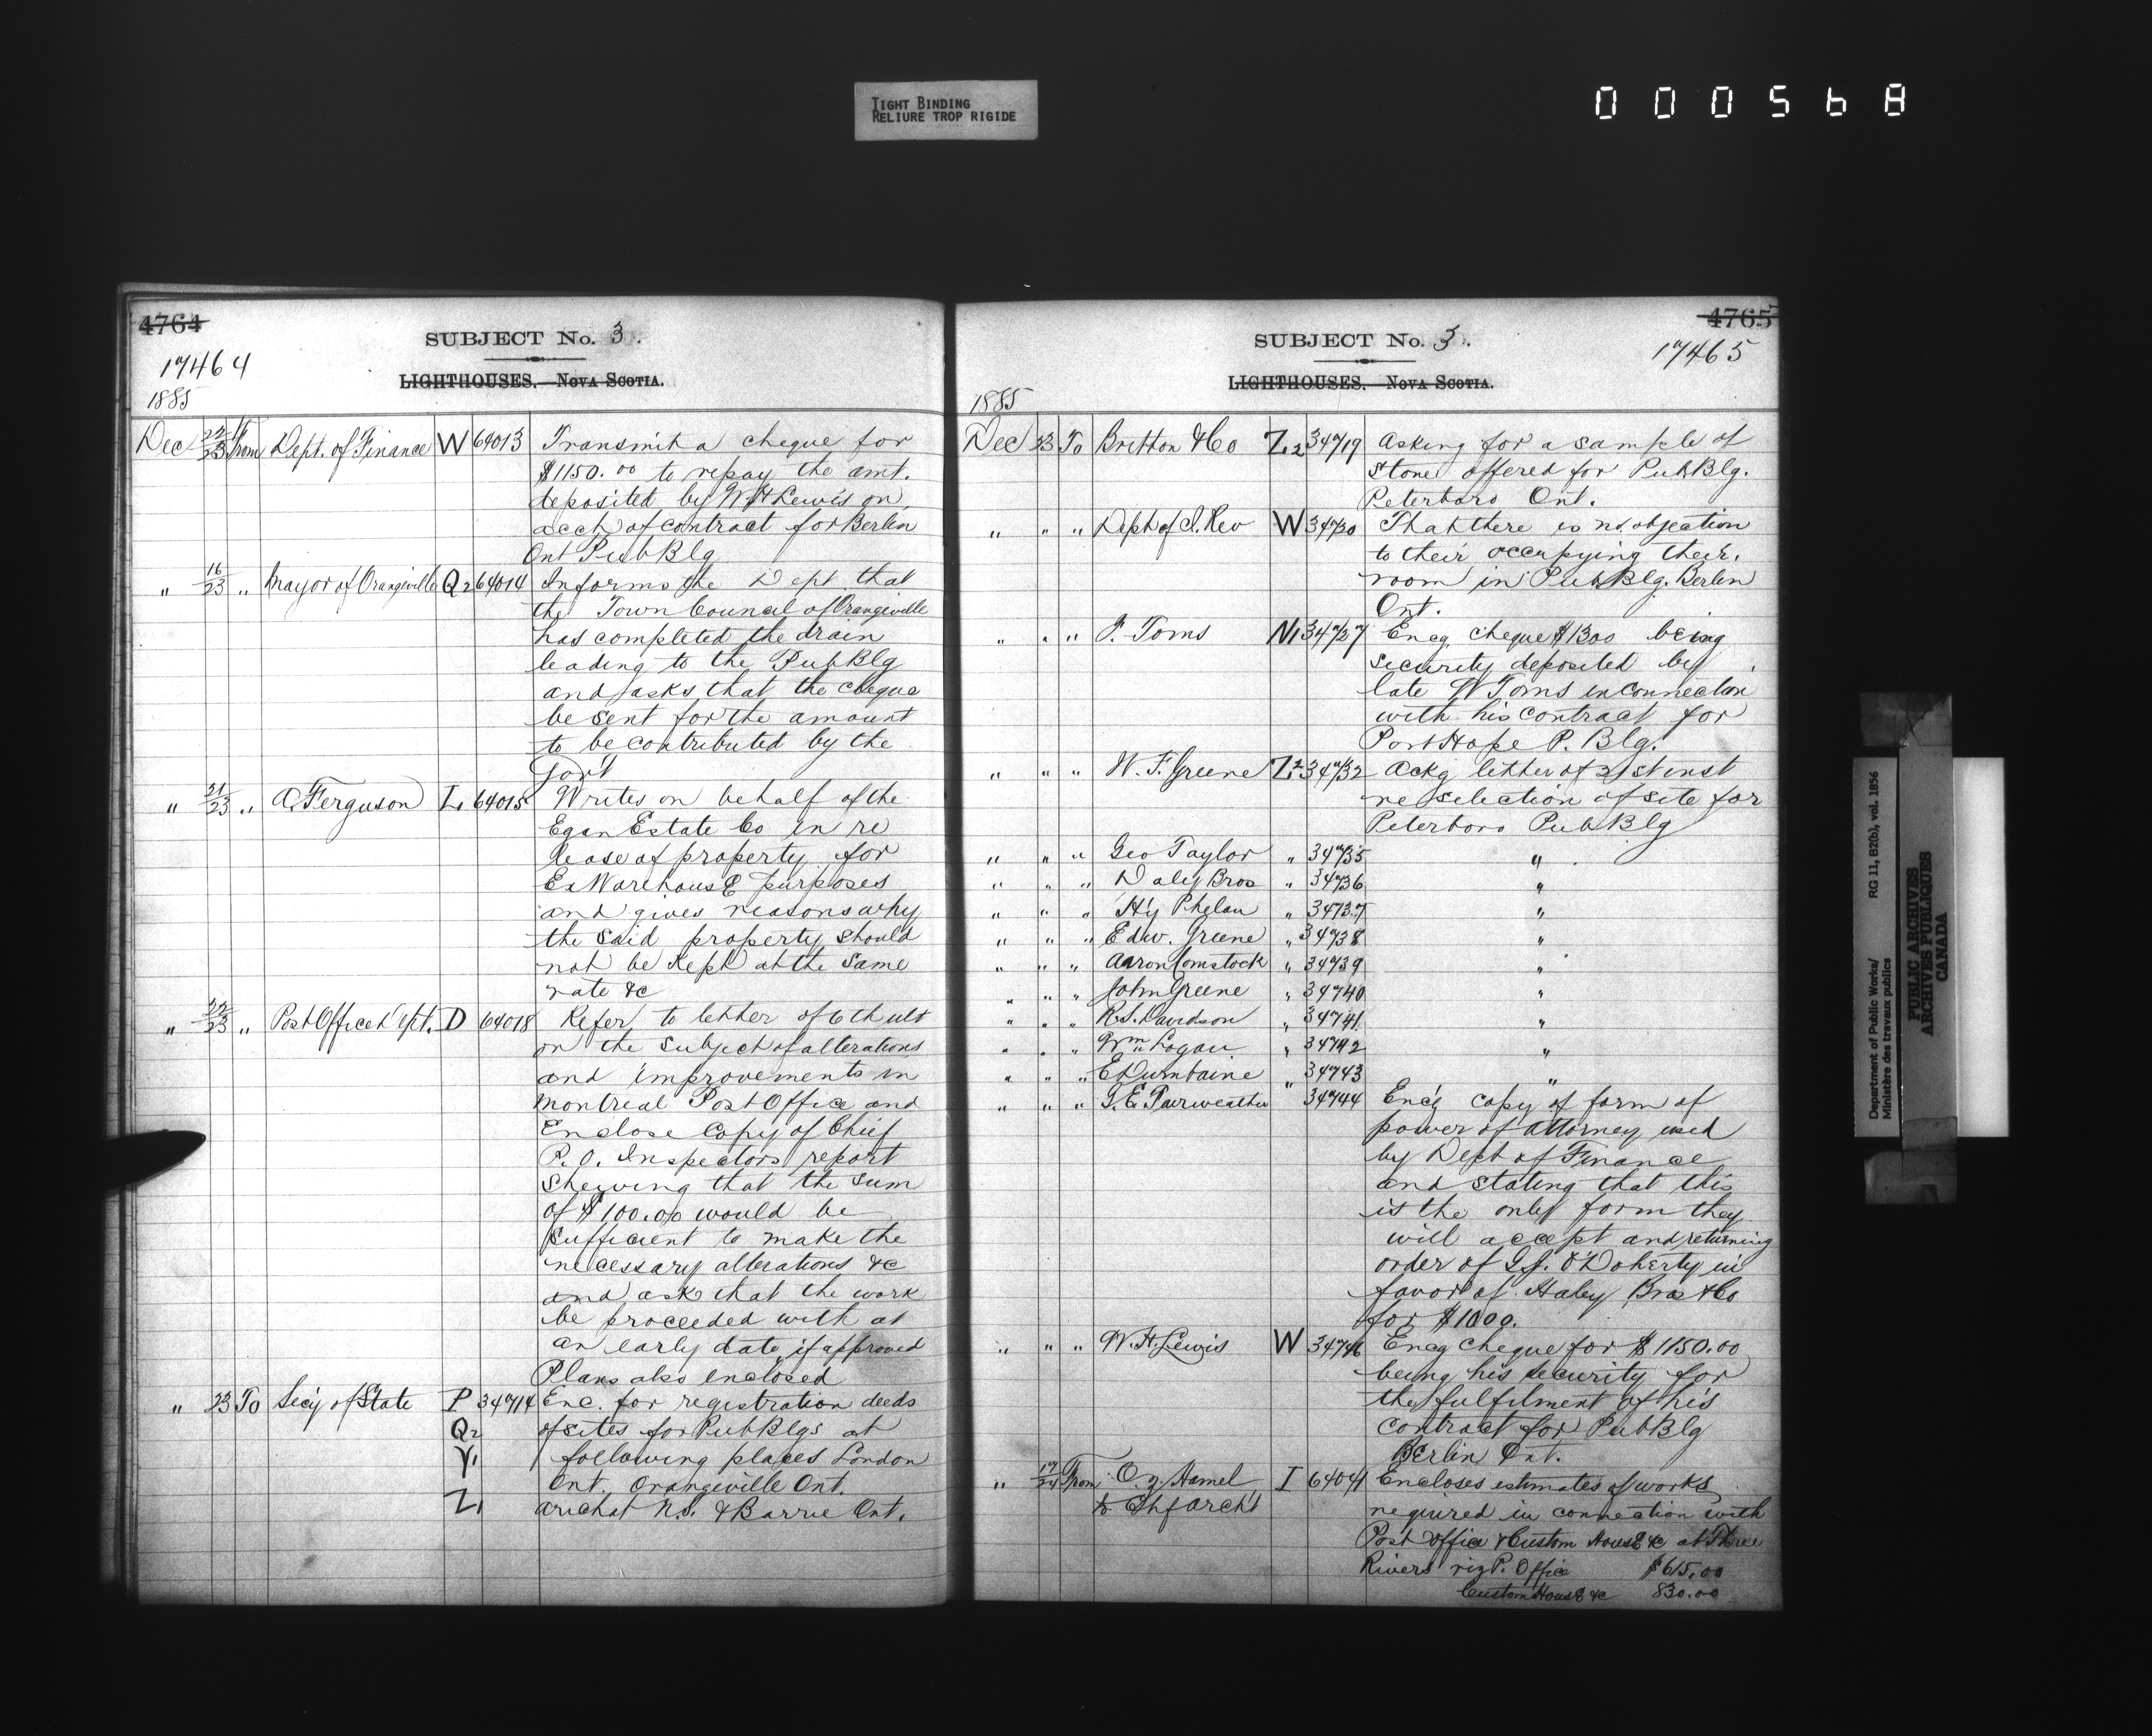 TIGHT BINDING
RELIURE TROP RIGIDE
000568
4764
SUBJECT No. 3.
17464
LIGHTHOUSES. — NOVA SCOTIA.
1885
Dec 22/23 From Dept. of Finance W 64013 Transmit a cheque for
$1150.00 to repay the amt.
deposited by W H Lewis on
acct of contract for Berlin
Ont Pub Blg
" 16/23 " Mayor of Orangeville Q2 64014 Informs the Dept that
the Town Council of Orangeville
has completed the drain
leading to the Pub Blg
and asks that the cheque
be sent for the amount
to be contributed by the
Govt
" 21/23 " A. Ferguson L1 64015 Writes on behalf of the
Egan Estate Co in re
lease of property for
Ex Warehouse purposes
and gives reasons why
the said property should
not be kept at the same
rate &c
" 22/23 " Post Office Dept. D 64018 Refer to letter of 6th ult
on the subject of alterations
and improvements in
Montreal Post Office and
Enclose Copy of Chief
P. O. Inspectors report
Shewing that the sum
of $100.00 would be
Sufficient to make the
necessary alterations &c
and ask that the work
be proceeded with at
an early date if approved
Plans also enclosed
" 23 To Secy of State P 34714 Enc. for registration deeds
Q2 of sites for Pub Blgs at
Y1 following places London
Ont. Orangeville Ont.
Z1 Arichat N.S. & Barrie Ont.
4765
SUBJECT No. 3.
17465
LIGHTHOUSES. — NOVA SCOTIA.
1885
Dec 23 To Britton & Co Z2 34719 Asking for a sample of
Stone offered for Pub Blg.
Peterboro Ont.
" " " Dept of I. Rev W 34720 That there is no objection
to their occupying their
room in Pub Blg. Berlin
Ont.
" " " F. Toms N1 34727 Encg cheque $1300 being
security deposited by
late W Toms in connection
with his contract for
Port Hope P. Blg.
" " " W. F. Greene Z2 34732 Ackg letter of 21st inst
re selection of site for
Peterboro Pub Blg
" " " Geo Taylor " 34735 "
" " " Daly Bros " 34736 "
" " " Hy Phelan " 34737 "
" " " Edw. Greene " 34738 "
" " " Aaron Comstock " 34739 "
" " " John Greene " 34740 "
" " " R. S. Davidson " 34741 "
" " " Wm Logan " 34742 "
" " " E Dumbaine " 34743 "
" " " G. E. Fairweather 34744 Enc'g copy of form of
power of attorney used
by Dept of Finance
and stating that this
is the only form they
will accept and returning
order of G. J. O'Doherty in
favor of Haley Bros & Co
for $1000.
" " " W. H. Lewis W 34746 Encg cheque for $1150.00
being his security for
the fulfilment of his
contract for Pub Blg
Berlin Ont.
" 17/24 From O. Z. Hamel I 64041 Encloses estimates of works
to Chf Archt required in connection with
Post Office & Custom House &c at Three
Rivers viz P. Office $615.00
Custom House &c 830.00
Department of Public Works/ RG 11, B2(b), vol. 1856
Ministère des travaux publics
PUBLIC ARCHIVES
ARCHIVES PUBLIQUES
CANADA